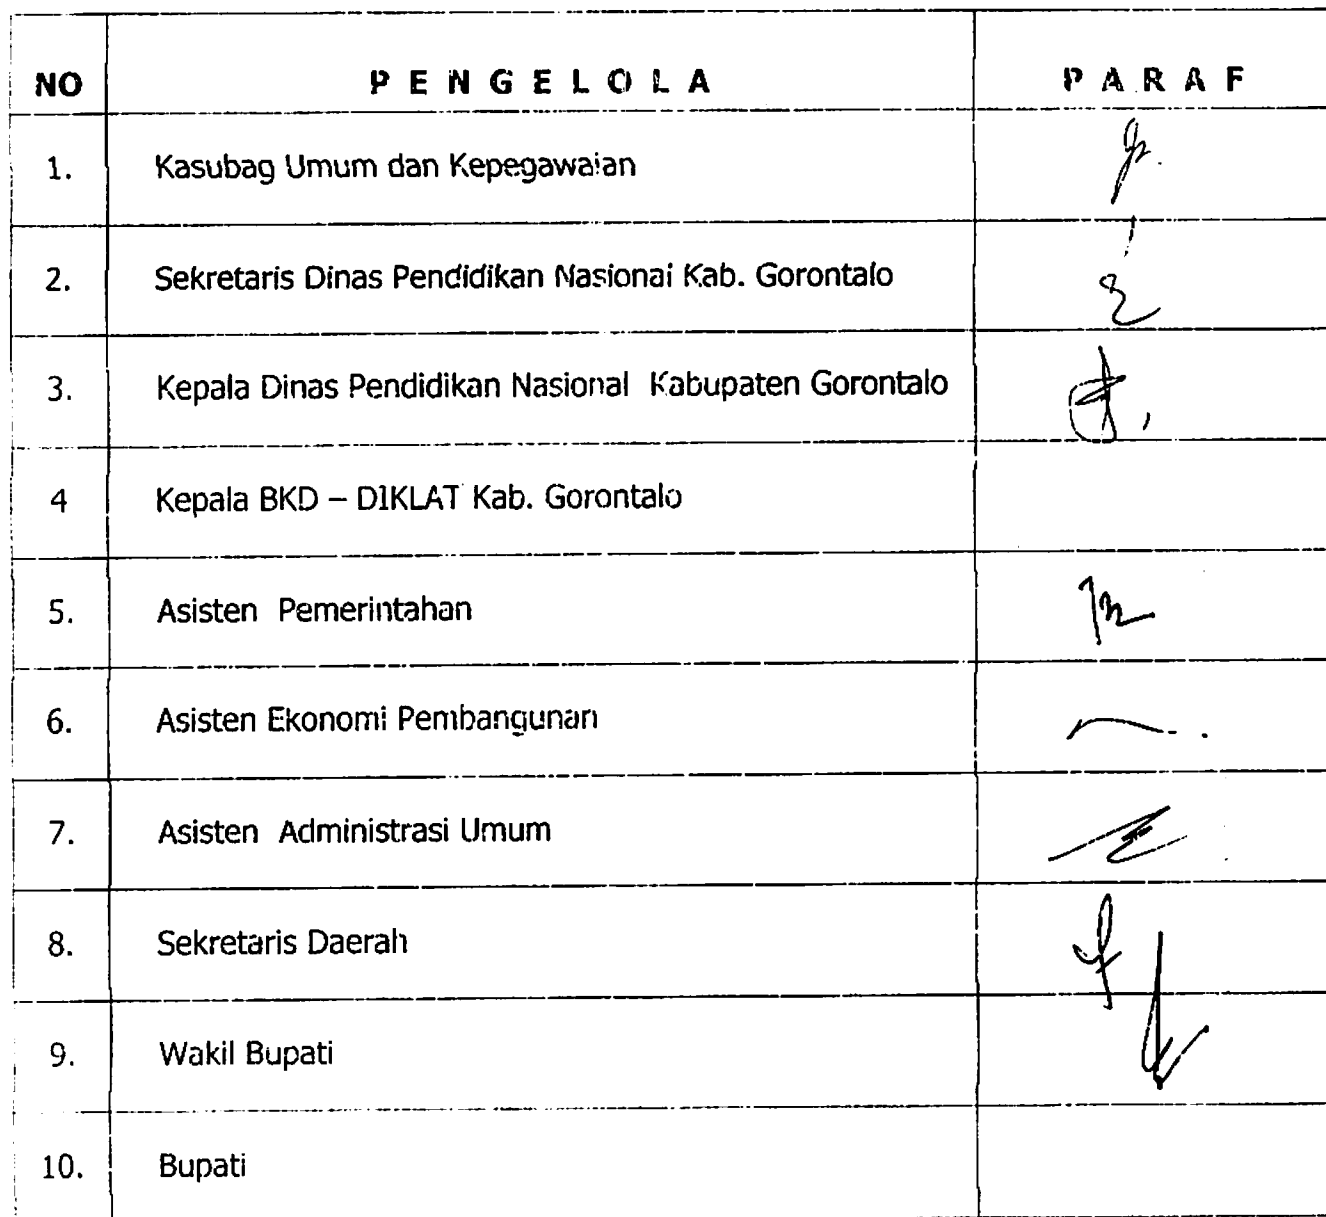 NO PENGELOLA PARAF
1. Kasubag Umum dan Kepegawaian
2. Sekretaris Dinas Pendidikan Nasional Kab. Gorontalo
3. Kepala Dinas Pendidikan Nasional Kabupaten Gorontalo
4 Kepala BKD – DIKLAT Kab. Gorontalo
5. Asisten Pemerintahan
6. Asisten Ekonomi Pembangunan
7. Asisten Administrasi Umum
8. Sekretaris Daerah
9. Wakil Bupati
10. Bupati